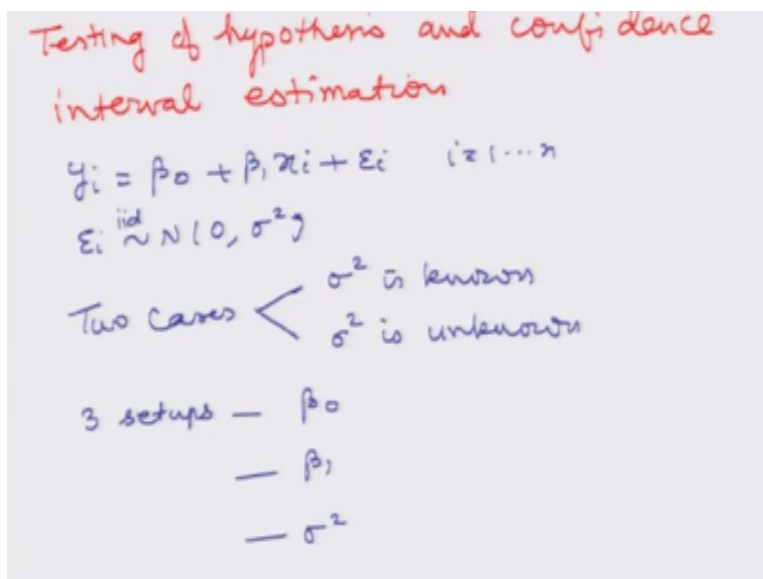 Testing of hypothesis and confidence
interval estimation
yi = β0 + β1 xi + εi i = 1 ... n
εi iid ~ N(0, σ²)
Two cases < σ² is known
σ² is unknown
3 setups — β0
— β1
— σ²